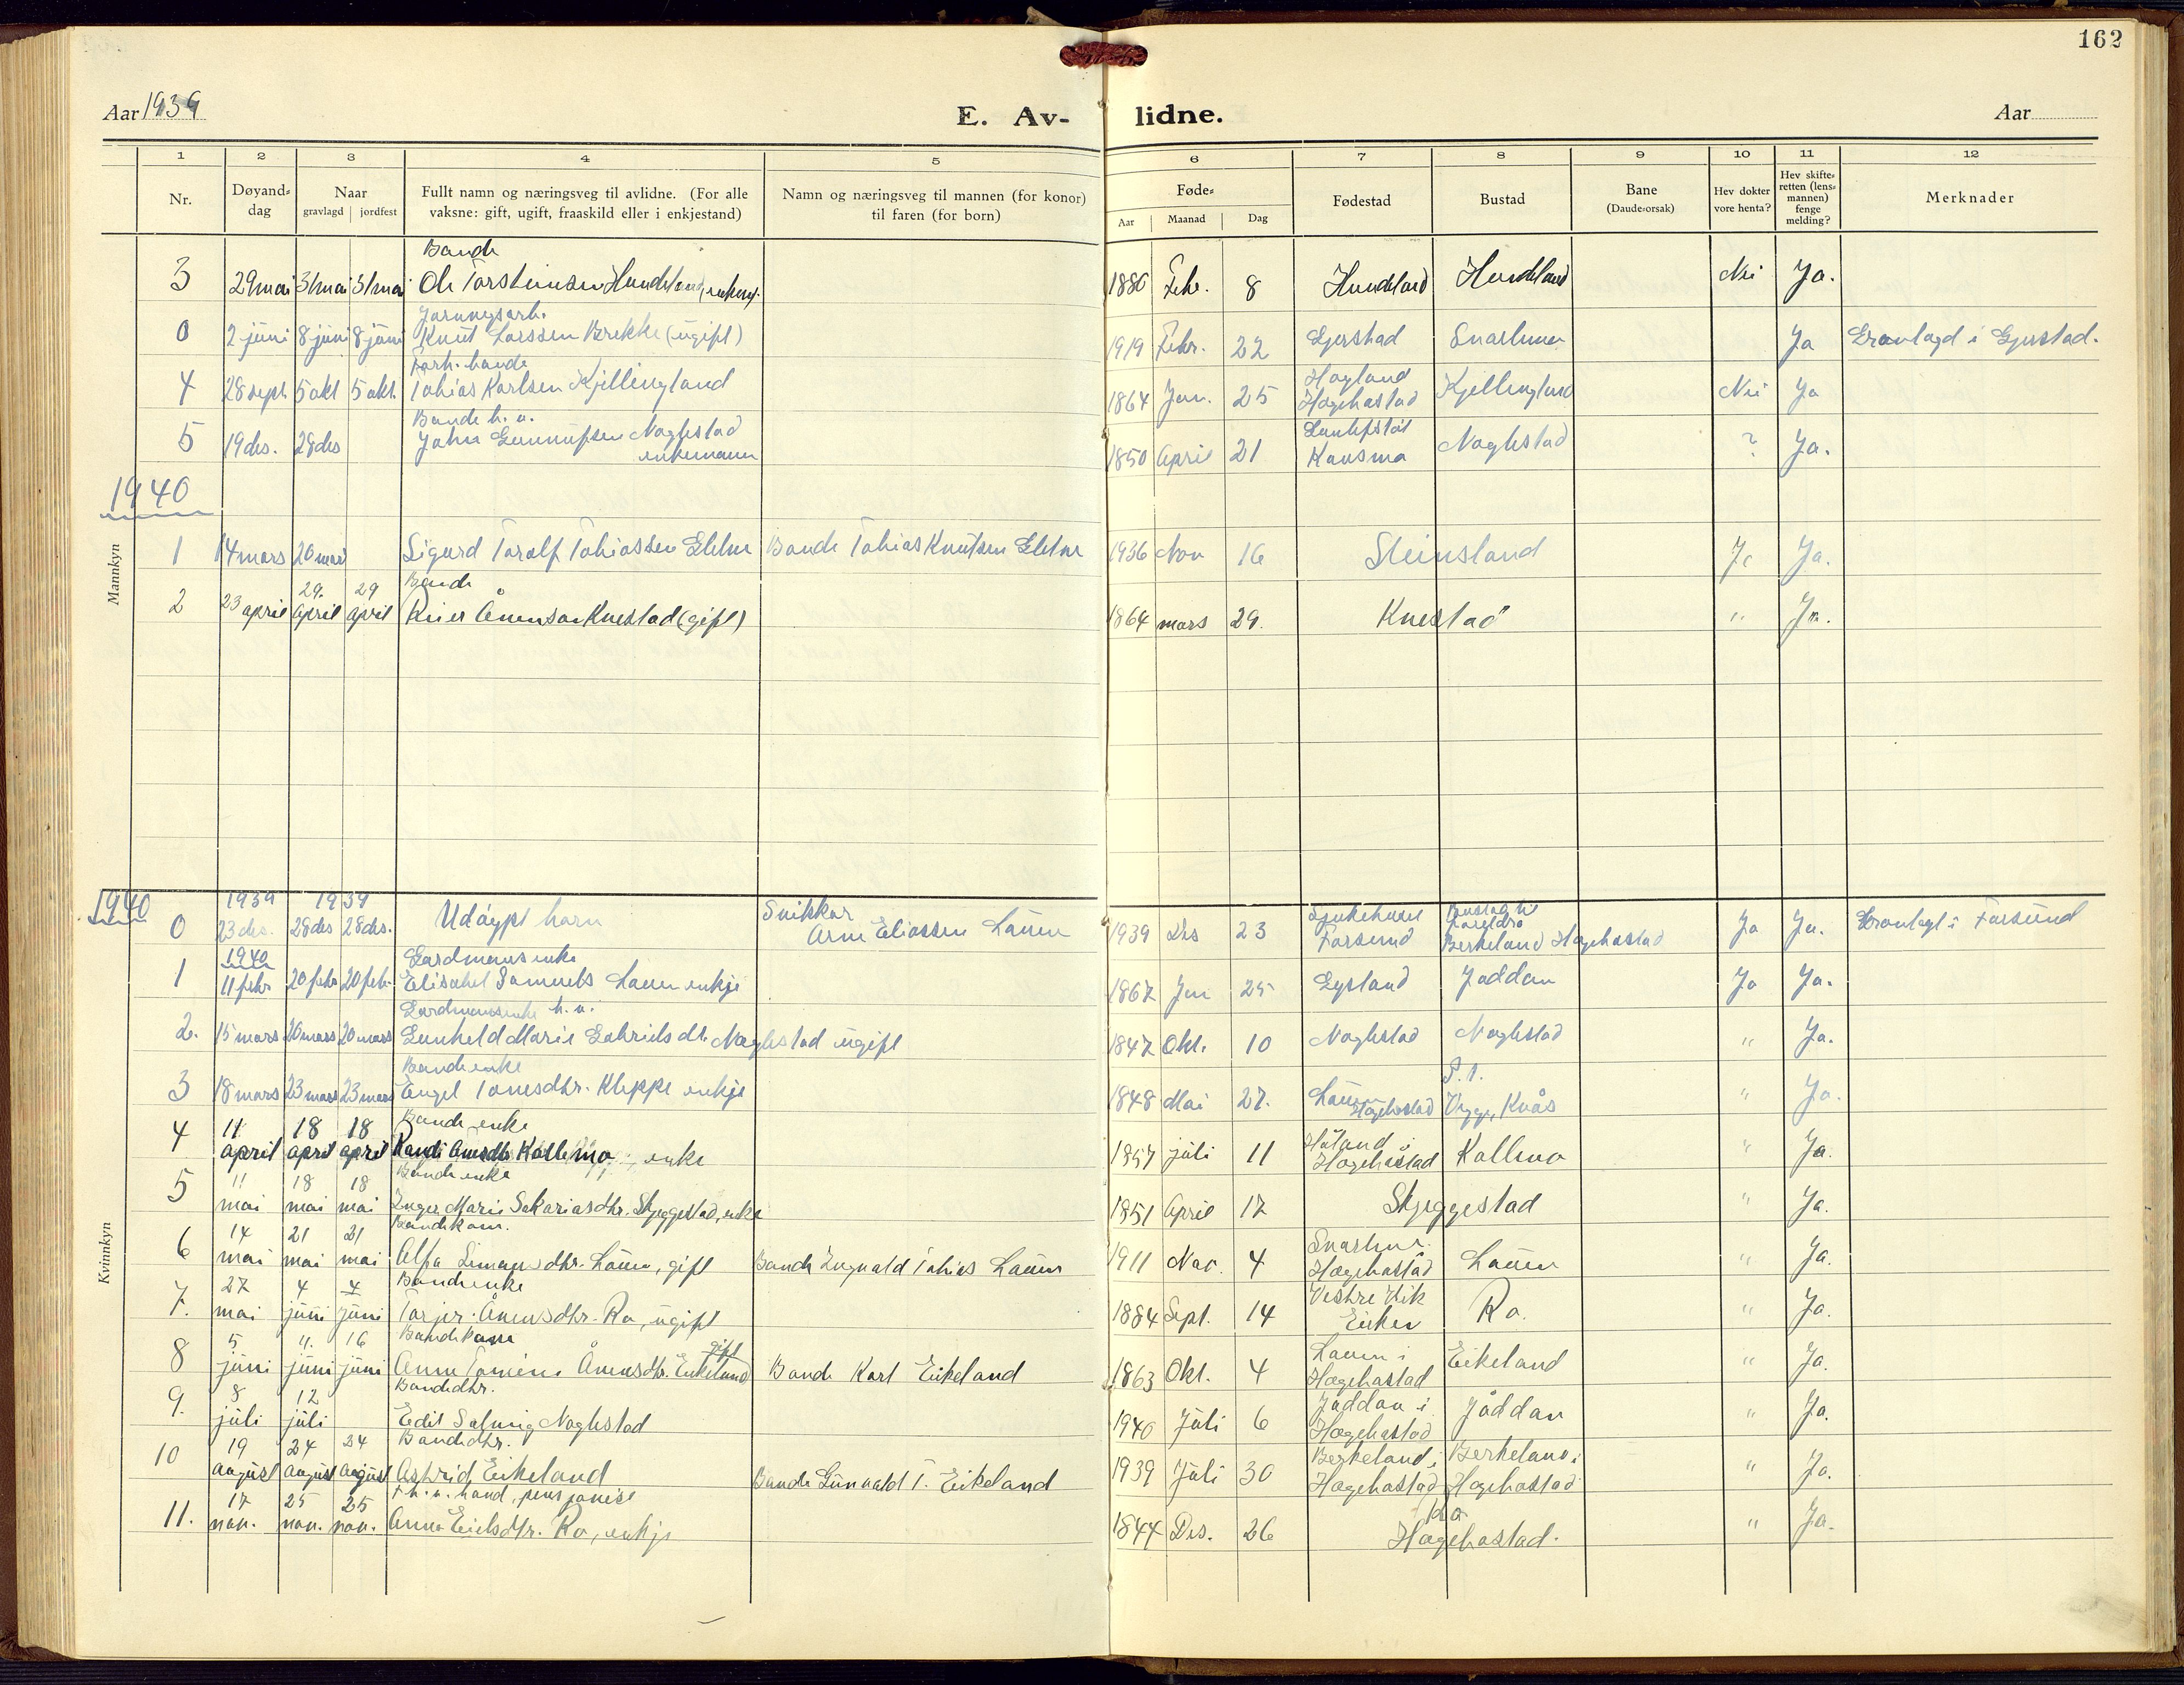 162
Aar 1939
E. Av- lidne.
Aar
1 2 3 4 5 6 7 8 9 10 11 12
Nr.
Døyand-dag
Naar
gravlagd jordfest
Fullt namn og næringsveg til avlidne. (For alle
vaksne: gift, ugift, fraaskild eller i enkjestand)
Namn og næringsveg til mannen (for konor)
til faren (for born)
Føde-
Aar Maanad Dag
Fødestad
Bustad
Bane
(Daude-orsak)
Hev dokter
vore henta?
Hev skifte-
retten (lens-
mannen)
fenge
melding?
Merknader
Mannkyn
Bonde
3 29 mai 31 mai 31 mai Ole Torsteinsen Hundeland, enkem. 1880 Febr. 8 Hundeland Hundeland Nei Ja.
0 2 juni 8 juni 8 juni Knut Larssen Brekke (ugift) 1919 Febr. 22 Gjerstad Snartemo Ja Gravlagd i Gjerstad.
Forh. bonde
4 28 sept. 5 okt 5 okt. Tobias Karlsen Kjellingland 1864 Jan. 25 Hægebostad Kjellingland Nei Ja
Bonde
5 19 des. 28 des John Gunnufsen Naglestad enkemann 1850 April 21 Naglestad ? Ja.
1940
1 14 mars 20 mars Sigurd Toralf Tobiassen Bonde Tobias Knutsen 1936 Nov 16 Steinsland Ja Ja.
Bonde
2 23 april 29. april 29 april Ånensen Knestad (gift) 1864 mars 29. Knestad " Ja.
Kvinnkyn
1940
1939 1939
0 23 des. 28 des 28 des. Udøypt barn Snikkar Arne Eliassen Lauen 1939 Des 23 Sjukehuset Farsund Bustad til foreldra Berkeland Hægebostad Ja Ja. Gravlagt i Farsund
1940
Gardmans enke
1 11 febr 20 febr 20 feb. Elisabet Samuels Lauen enkje 1867 Jan 25 Eysland Jaddan Ja Ja.
2. 15 mars 20 mars 20 mars Gunheld Marie Gabrielsdtr. Naglestad ugift 1847 Okt. 10 Naglestad Naglestad " Ja.
Bonde enke
3 18 mars 23 mars 23 mars Engel Tønesdtr. Kleppe enkje 1848 Mai 27. Lauen Hægebostad Vegge, Kvås " Ja.
Bonde enke
4 11 april 18 april 18 april Randi Ånensdtr Kollemo, enke 1857 juli 11 Håland i Hægebostad Kollemo " Ja.
Bonde enke
5 11 mai 18 mai 18 mai Inger Marie Sakariasdtr. Skjeggestad, enke 1851 April 17 Skjeggestad " Ja.
Bondekone.
6 14 mai 21 mai 21 mai Alfa Simonsdtr. Lauen, gift Bonde Ingvald Tobias Lauen 1911 Nov. 4 Snartemo Hægebostad Lauen " Ja.
Bonde enke
7. 27 mai 4 juni 4 juni Torjer Ånensdtr. Ro, ugift 1884 Sept. 14 Vestre Vik Eiken Ro. " Ja.
Bondekone
8 5 juni 11. juni 16 juni Anne Tomine Ånensdtr. Eikeland gift Bonde Karl Eikeland 1863 Okt. 4 Lauen i Hægebostad Eikeland " Ja.
Bondedtr.
9. 8 juli 12 juli Edit Solveig Naglestad 1940 Juli 6 Jåddan i Hægebostad Jåddan " Ja.
Bondedtr.
10 19 august 24 august 24 august Astrid Eikeland Bonde Gunvald T. Eikeland 1939 Juli 30 Berkeland i Hægebostad Berkeland i Hægebostad " Ja.
11. 17 nov. 25 nov. 25 nov. Anne Eielsdtr. Ro, enkje 1844 Des. 26 Ro Hægebostad. " Ja.